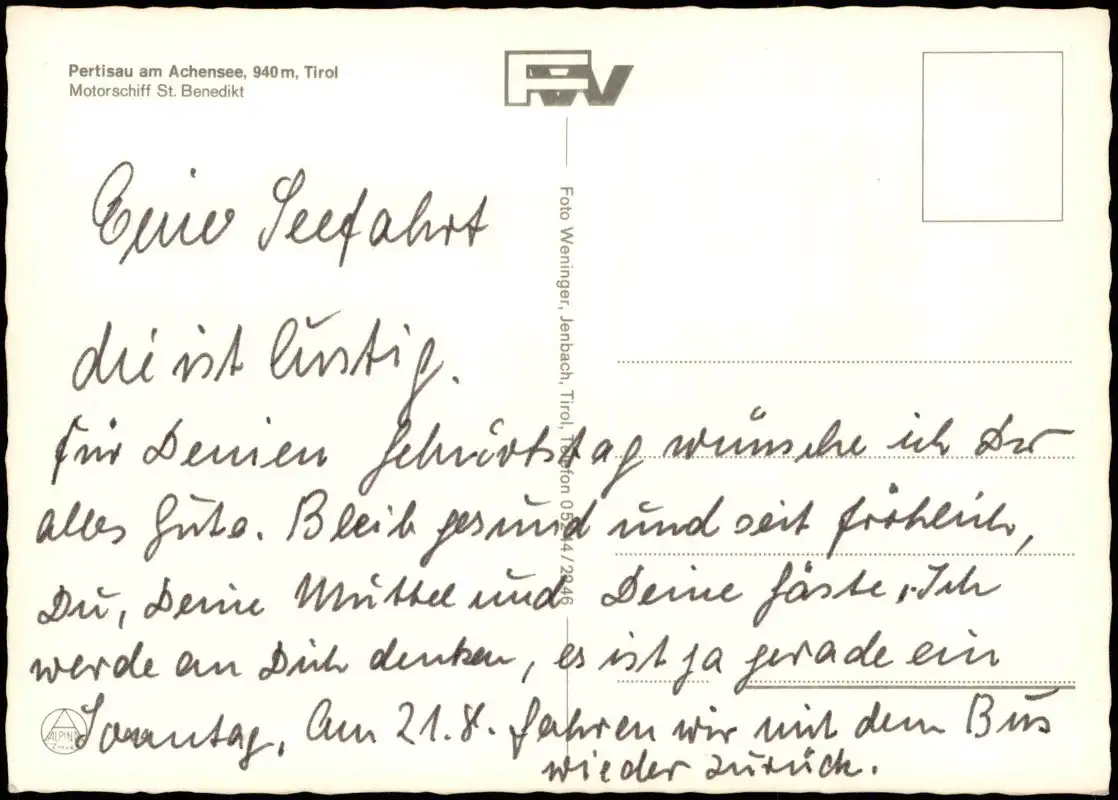 Pertisau am Achensee, 940 m, Tirol
Motorschiff St. Benedikt
FW
Foto Weninger, Jenbach, Tirol, Telefon 05244/2946
Eine Seefahrt
die ist lustig.
Für Deinen Geburtstag wünsche ich Dir
alles Gute. Bleib gesund und seit fröhlich,
Du, Deine Muttel und Deine Gäste. Ich
werde an Dich denken, es ist ja gerade ein
Sonntag. Am 21.8. fahren wir mit dem Bus
wieder zurück.
ALPINA